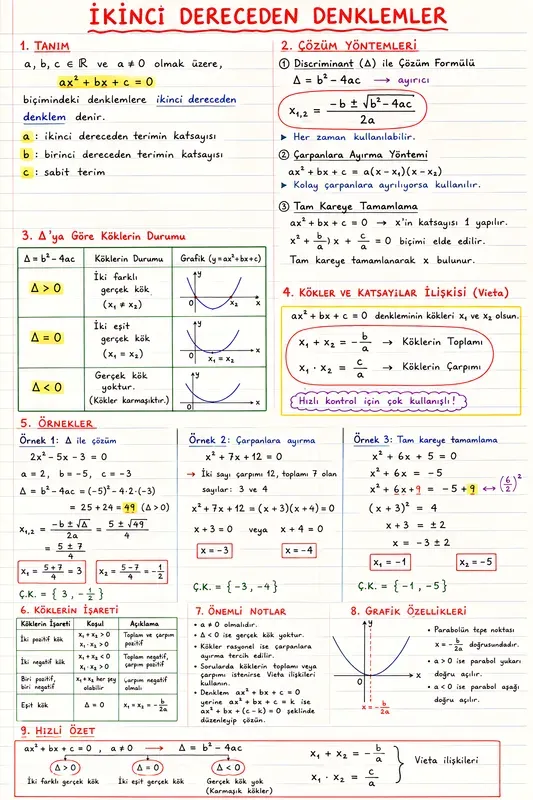 İKİNCİ DERECEDEN DENKLEMLER
1. TANIM
a, b, c ∈ ℝ ve a ≠ 0 olmak üzere,
ax² + bx + c = 0
biçimindeki denklemlere ikinci dereceden
denklem denir.
a : ikinci dereceden terimin katsayısı
b : birinci dereceden terimin katsayısı
c : sabit terim
2. ÇÖZÜM YÖNTEMLERİ
① Discriminant (Δ) ile Çözüm Formülü
Δ = b² - 4ac → ayırıcı
x₁,₂ = (-b ± √b² - 4ac) / 2a
▶ Her zaman kullanılabilir.
② Çarpanlara Ayırma Yöntemi
ax² + bx + c = a(x - x₁)(x - x₂)
▶ Kolay çarpanlara ayrılıyorsa kullanılır.
③ Tam Kareye Tamamlama
ax² + bx + c = 0 → x'in katsayısı 1 yapılır.
x² + b/a ) x + c/a = 0 biçimi elde edilir.
Tam kareye tamamlanarak x bulunur.
3. Δ'ya Göre Köklerin Durumu
Δ = b² - 4ac Köklerin Durumu Grafik (y = ax² + bx + c)
Δ > 0
İki farklı
gerçek kök
(x₁ ≠ x₂)
y
0 x₂ x
Δ = 0
İki eşit
gerçek kök
(x₁ = x₂)
y
0 x₁ = x₂ x
Δ < 0
Gerçek kök
yoktur.
(Kökler karmaşıktır.)
y
0 x
4. KÖKLER VE KATSAYILAR İLİŞKİSİ (Vieta)
ax² + bx + c = 0 denkleminin kökleri x₁ ve x₂ olsun.
x₁ + x₂ = - b/a → Köklerin Toplamı
x₁ · x₂ = c/a → Köklerin Çarpımı
Hızlı kontrol için çok kullanışlı!
5. ÖRNEKLER
Örnek 1: Δ ile çözüm
2x² - 5x - 3 = 0
a = 2, b = -5, c = -3
Δ = b² - 4ac = (-5)² - 4·2·(-3)
= 25 + 24 = 49 (Δ > 0)
x₁,₂ = (-b ± √Δ) / 2a = (5 ± √49) / 4
= (5 ± 7) / 4
x₁ = (5+7)/4 = 3 x₂ = (5-7)/4 = - 1/2
Ç.K. = { 3 , - 1/2 }
Örnek 2: Çarpanlara ayırma
x² + 7x + 12 = 0
→ İki sayı çarpımı 12, toplamı 7 olan
sayılar: 3 ve 4
x² + 7x + 12 = (x + 3)(x + 4) = 0
x + 3 = 0 veya x + 4 = 0
x = -3 x = -4
Ç.K. = { -3 , -4 }
Örnek 3: Tam kareye tamamlama
x² + 6x + 5 = 0
x² + 6x = -5
x² + 6x + 9 = -5 + 9 ↔ (6/2)²
(x + 3)² = 4
x + 3 = ± 2
x = -3 ± 2
x₁ = -1 x₂ = -5
Ç.K. = { -1 , -5 }
6. KÖKLERİN İŞARETİ
Köklerin İşareti Koşul Açıklama
İki pozitif kök
x₁ + x₂ > 0
x₁ · x₂ > 0
Toplam ve çarpım
pozitif
İki negatif kök
x₁ + x₂ < 0
x₁ · x₂ > 0
Toplam negatif,
çarpım pozitif
Biri pozitif,
biri negatif
x₁ + x₂ her şey
olabilir
Çarpım negatif
olmalı
Eşit kök Δ = 0 x₁ = x₂ = - b/2a
7. ÖNEMLİ NOTLAR
• a ≠ 0 olmalıdır.
• Δ < 0 ise gerçek kök yoktur.
• Kökler rasyonel ise çarpanlara
ayırma tercih edilir.
• Sorularda köklerin toplamı veya
çarpımı istenirse Vieta ilişkileri
kullanın.
• Denklem ax² + bx + c = 0
yerine ax² + bx + c = k ise
ax² + bx + (c - k) = 0 şeklinde
düzenleyip çözün.
8. GRAFİK ÖZELLİKLERİ
y
0
x = - b/2a
• Parabolün tepe noktası
x = - b/2a doğrusundadır.
• a > 0 ise parabol yukarı
doğru açılır.
• a < 0 ise parabol aşağı
doğru açılır.
9. HIZLI ÖZET
ax² + bx + c = 0 , a ≠ 0 → Δ = b² - 4ac
Δ > 0 Δ = 0 Δ < 0
İki farklı gerçek kök İki eşit gerçek kök Gerçek kök yok
(Karmaşık kökler)
x₁ + x₂ = - b/a
x₁ · x₂ = c/a
Vieta ilişkileri